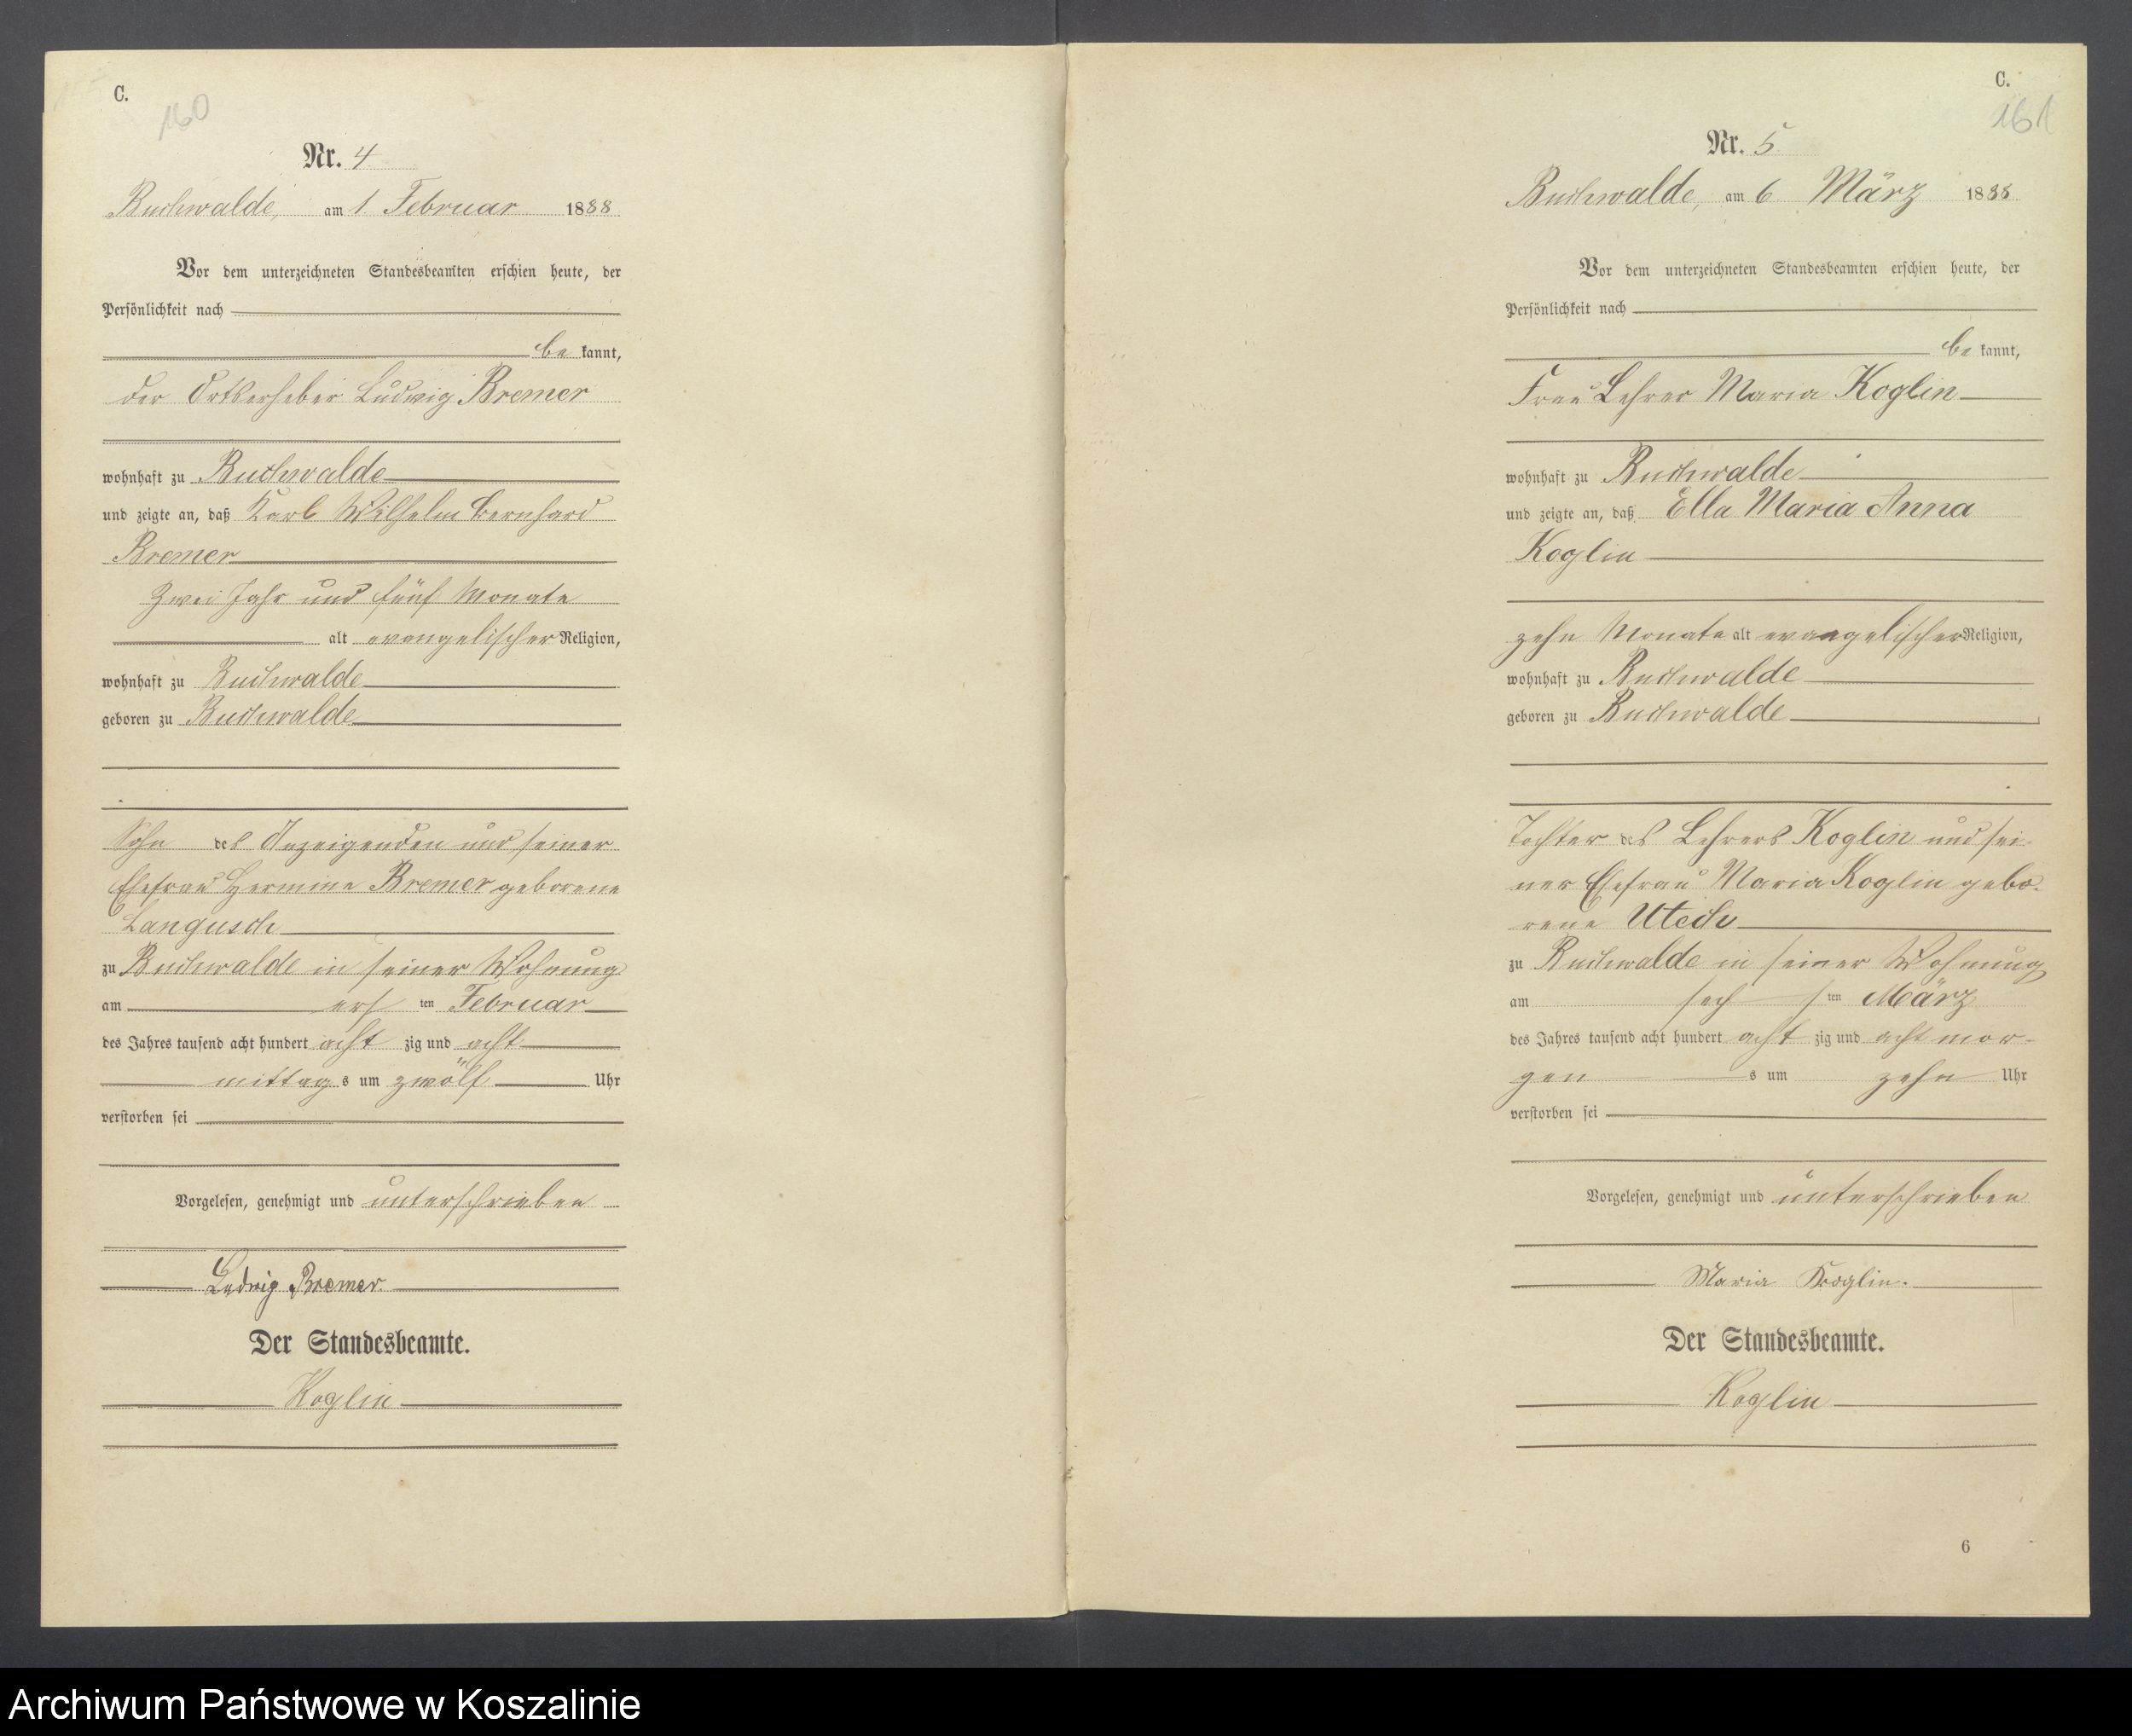 C.
160
Nr. 4
Buchwalde, am 1. Februar 1888
Vor dem unterzeichneten Standesbeamten erschien heute, der
Persönlichkeit nach
be kannt,
der Ortserheber Ludwig Bremer
wohnhaft zu Buchwalde
und zeigte an, daß Karl Wilhelm Bernhard
Bremer
zwei Jahr und fünf Monate
alt evangelischer Religion,
wohnhaft zu Buchwalde
geboren zu Buchwalde
Sohn des Anzeigenden und seiner
Ehefrau Hermine Bremer geborene
Langusch
zu Buchwalde in seiner Wohnung
am ers ten Februar
des Jahres tausend acht hundert acht zig und acht
mittag s um zwölf Uhr
verstorben sei
Vorgelesen, genehmigt und unterschrieben
Ludwig Bremer.
Der Standesbeamte.
Koglin
C.
161
Nr. 5
Buchwalde, am 6 März 1888
Vor dem unterzeichneten Standesbeamten erschien heute, der
Persönlichkeit nach
be kannt,
Frau Lehrer Maria Koglin
wohnhaft zu Buchwalde
und zeigte an, daß Ella Maria Anna
Koglin
zehn Monate alt evangelischer Religion,
wohnhaft zu Buchwalde
geboren zu Buchwalde
Tochter des Lehrers Koglin und sei-
ner Ehefrau Maria Koglin gebo-
rene Utech
zu Buchwalde in seiner Wohnung
am sech s ten März
des Jahres tausend acht hundert acht zig und acht mor-
gen s um zehn Uhr
verstorben sei
Vorgelesen, genehmigt und unterschrieben
Maria Koglin.
Der Standesbeamte.
Koglin
6
Archiwum Państwowe w Koszalinie